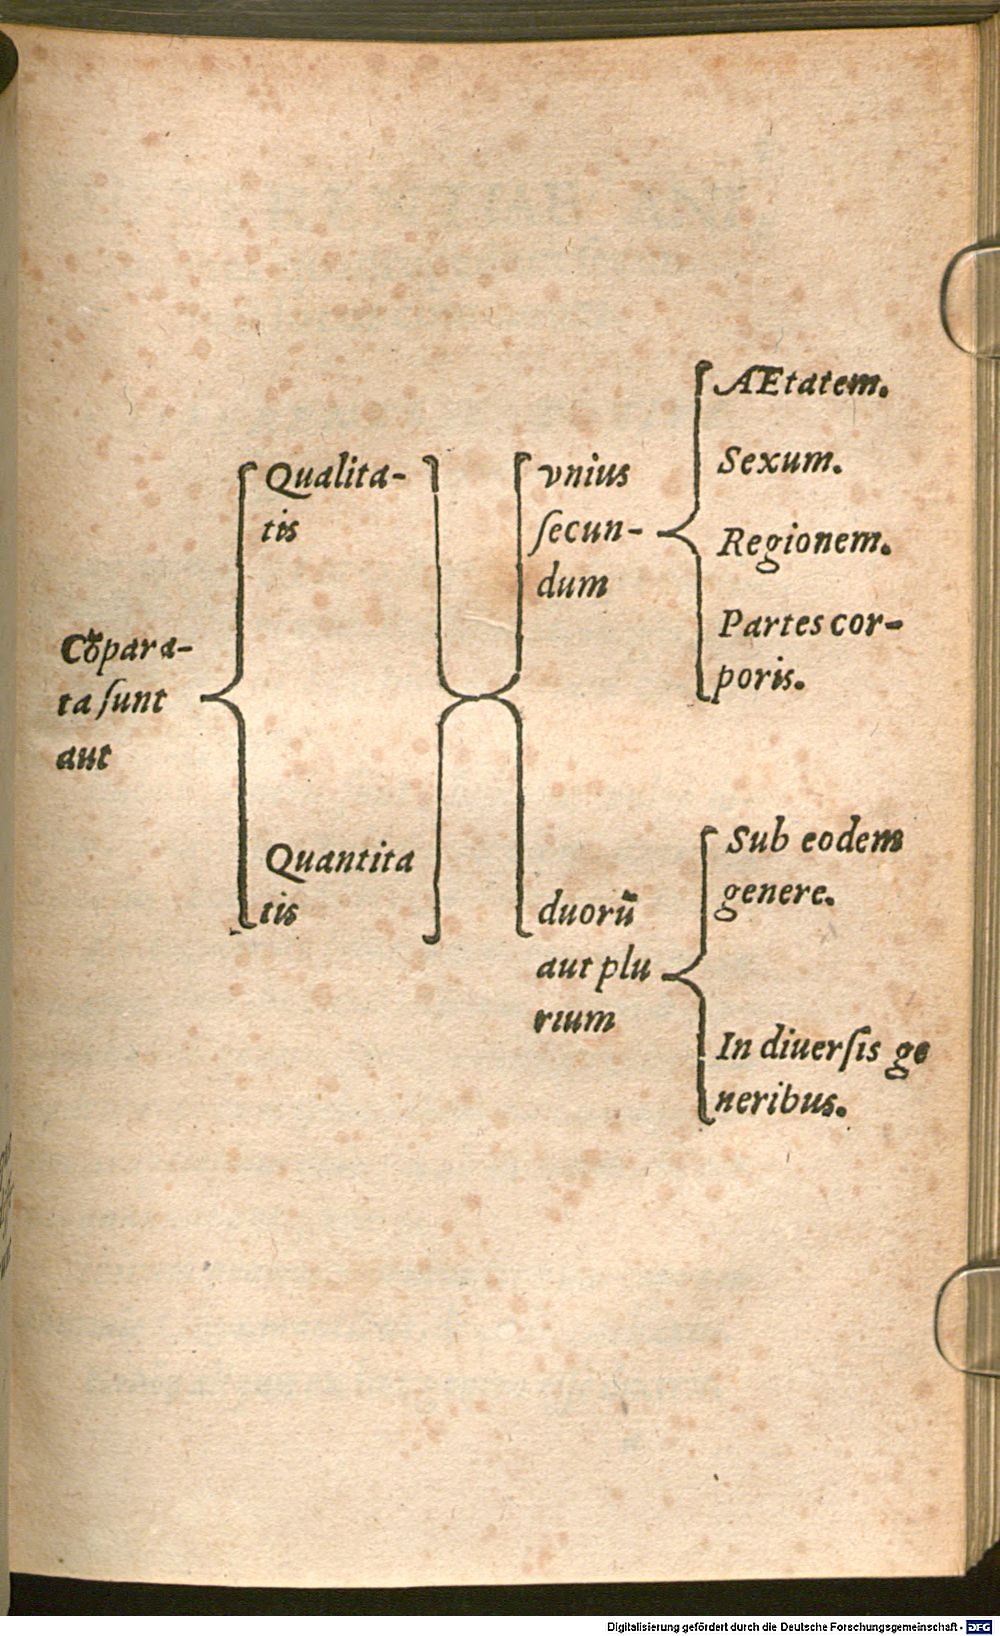 Cõpara-
ta ſunt
aut
Qualita-
tis
Quantita
tis
vnius
ſecun-
dum
AEtatem.
Sexum.
Regionem.
Partes cor-
poris.
duorũ
aut plu
rium
Sub eodem
genere.
In diuerſis ge
neribus.
Digitalisierung gefördert durch die Deutsche Forschungsgemeinschaft - DFG